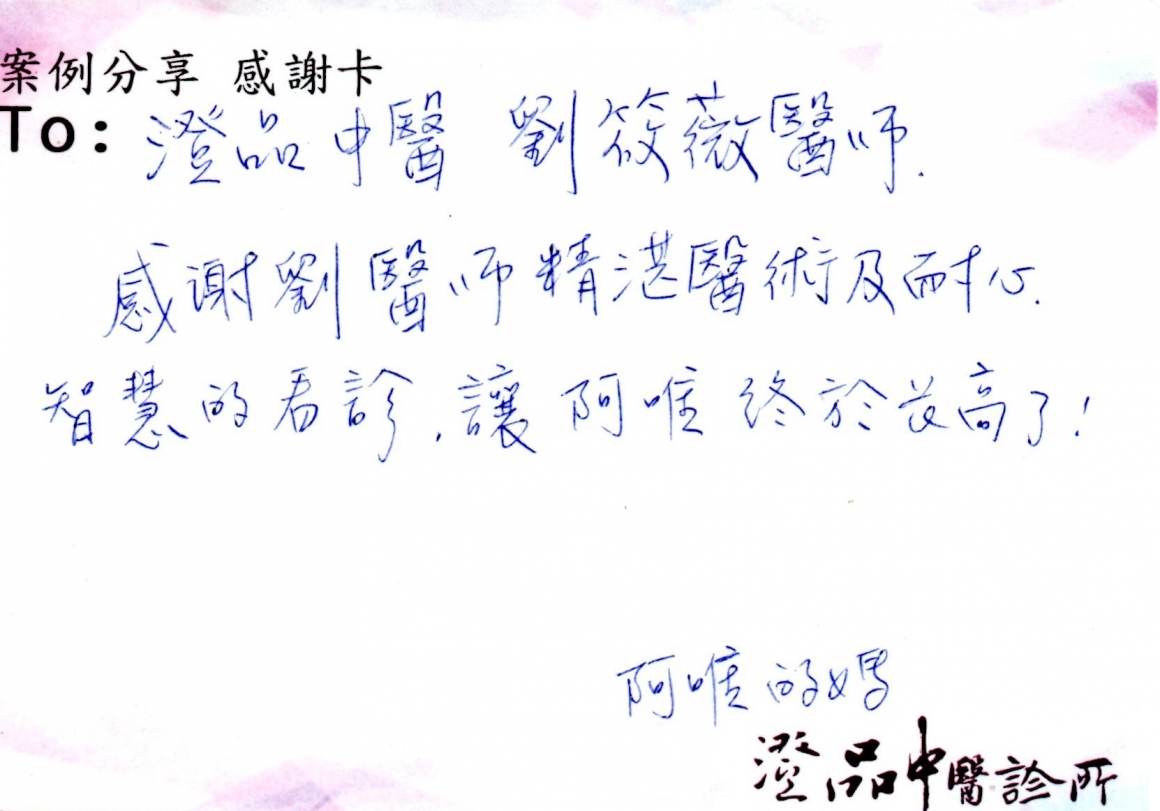 案例分享 感謝卡
To: 澄品中醫 劉筱薇醫師.
感謝劉醫師精湛醫術及耐心.
智慧的看診,讓阿唯終於長高了!
阿唯的媽
澄品中醫診所